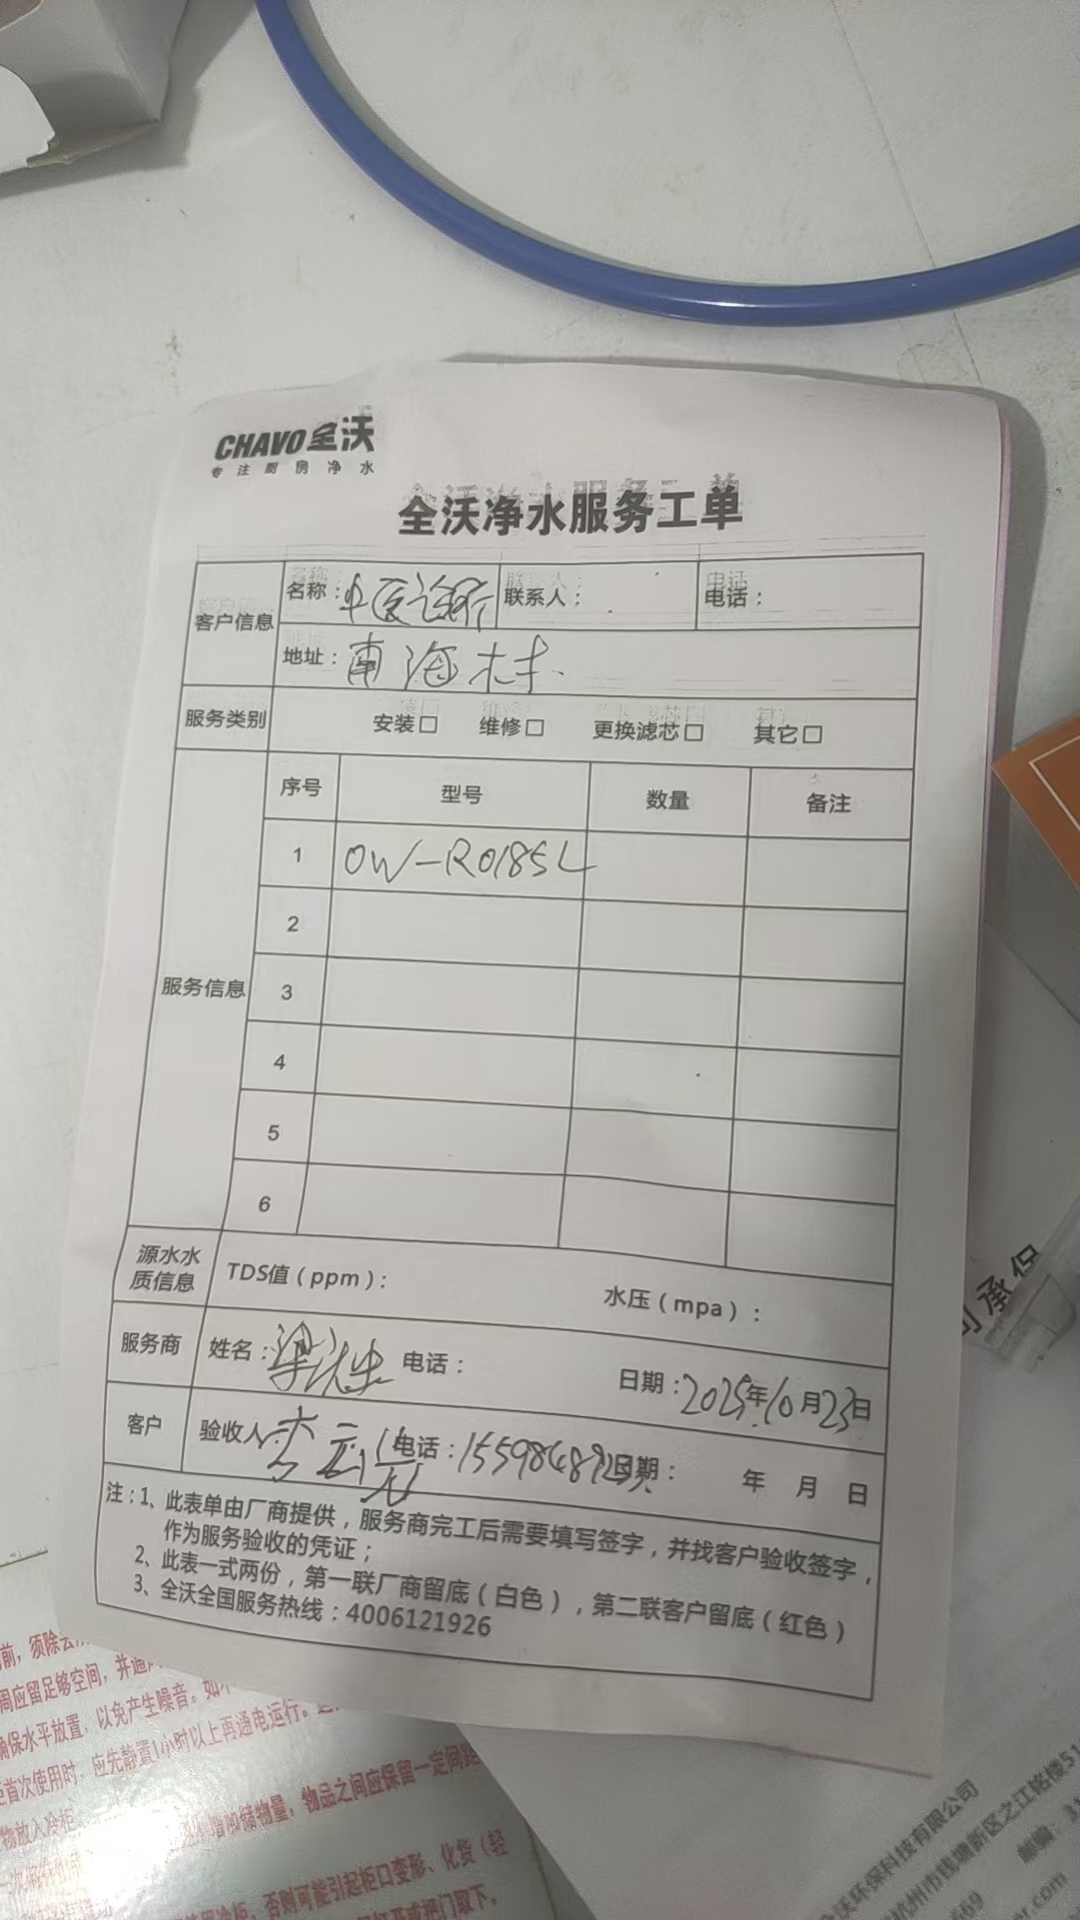 CHAVO 全沃
专注厨房净水
全沃净水服务工单
客户信息 名称：中医诊所 联系人： 电话：
地址：南海村
服务类别 安装□ 维修□ 更换滤芯□ 其它□
服务信息 序号 型号 数量 备注
1 OW-RO185L
2
3
4
5
6
源水水质信息 TDS值（ppm）： 水压（mpa）：
服务商 姓名：梁先生 电话： 日期：2025年10月23日
客户 验收人 李 电话： 日期： 年 月 日
注：1、此表单由厂商提供，服务商完工后需要填写签字，并找客户验收签字，
作为服务验收的凭证；
2、此表一式两份，第一联厂商留底（白色），第二联客户留底（红色）
3、全沃全国服务热线：4006121926
司承保
前，须除去
周应留足够空间，并
确保水平放置，以免产生噪音。如
首次使用时，应先静置1小时以上再通电运行。
物放入冷柜
储物量，物品之间应保留一定间距
冷柜，否则可能引起柜口变形、化货（轻
或把门取下。
沃环保科技有限公司
杭州市钱塘新区之江铭楼51
邮编：31
669
.com